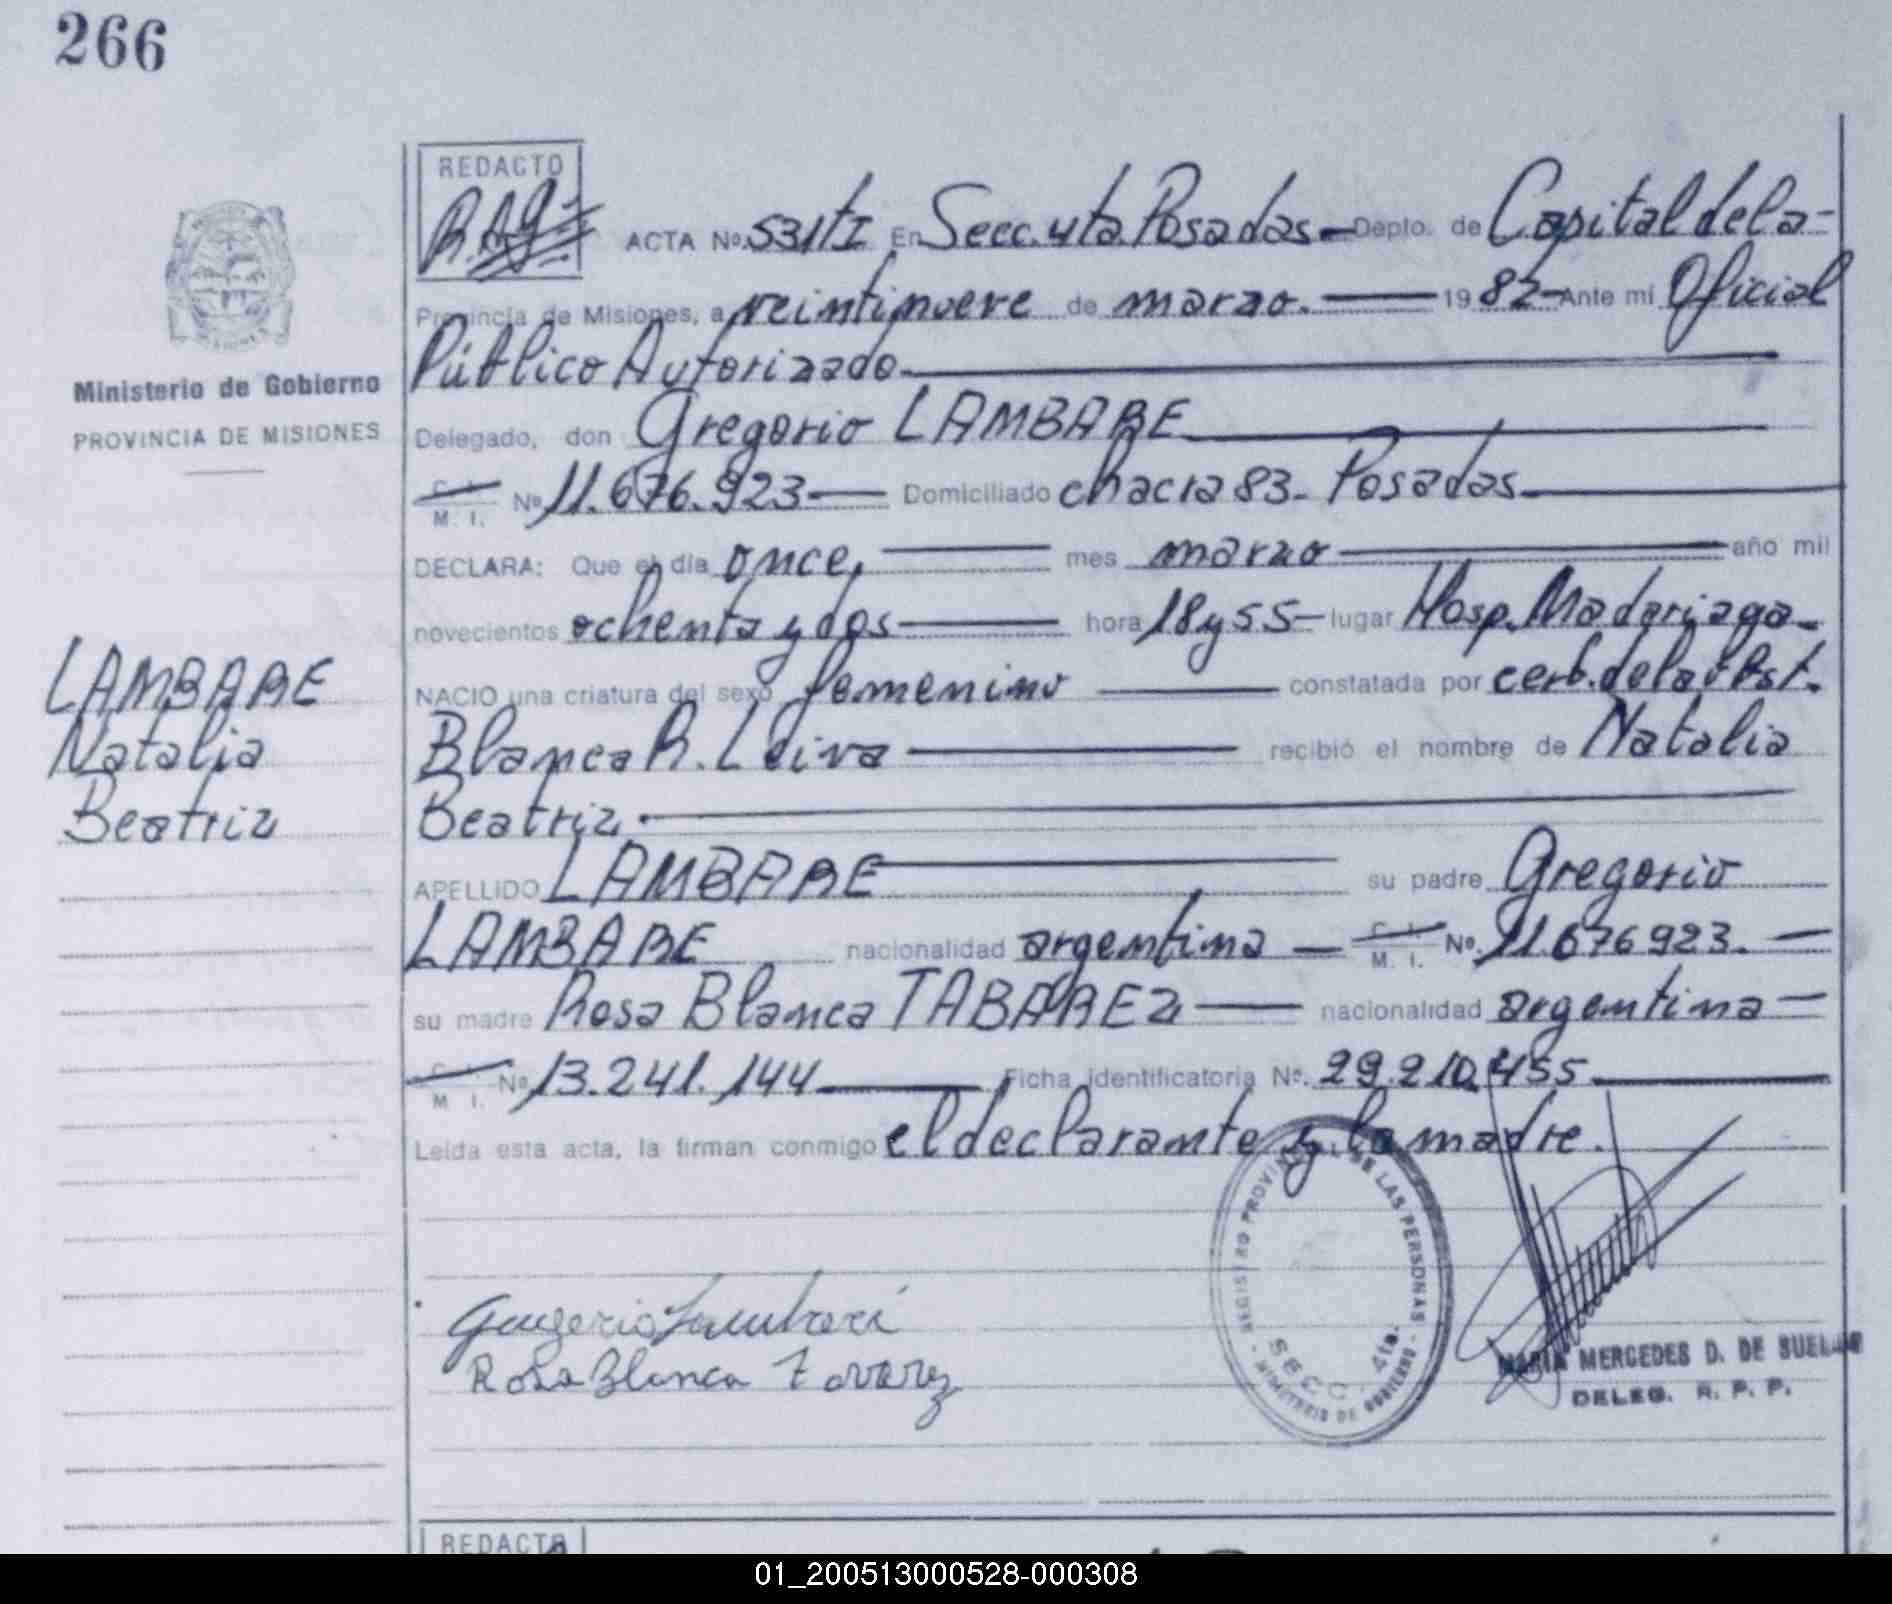 266
REDACTO
ACTA No. 531 T I En Secc. 4ta Posadas Depto. de Capital de la
Provincia de Misiones, a veintinueve de marzo. 1982 Ante mí Oficial
Público Autorizado
Ministerio de Gobierno
PROVINCIA DE MISIONES
Delegado, don Gregorio LAMBARE
C. I. M. I. No 11.676.923 Domiciliado chacra 83 - Posadas
DECLARA: Que el día once, mes marzo año mil
novecientos ochenta y dos hora 18 y 55 lugar Hosp. Madariaga
NACIO una criatura del sexo femenino constatada por cert. de la Obst.
LAMBARE
Natalia
Beatriz
Blanca R. Leiva recibió el nombre de Natalia
Beatriz
APELLIDO LAMBARE su padre Gregorio
LAMBARE nacionalidad argentina C. I. M. I. No. 11.676923.
su madre Rosa Blanca TABAREZ nacionalidad argentina
C. I. M. I. No 13.241.144 Ficha identificatoria No. 29.210.455
Leída esta acta, la firman conmigo el declarante y la madre.
Rosa Blanca Tavarez
REGISTRO PROVINCIAL DE LAS PERSONAS
SECC. 4ta.
MINISTERIO DE GOBIERNO
MARIA MERCEDES D. DE
DELEG. R. P. P.
REDACTO
01_200513000528-000308